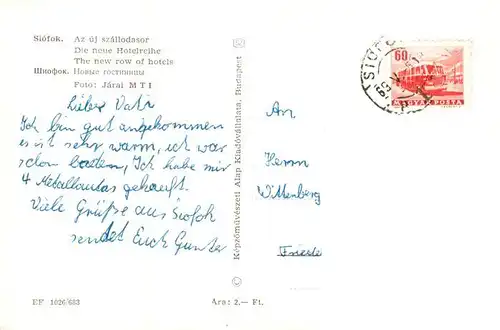 Siófok. Az új szállodasor
Die neue Hotelreihe
The new row of hotels
Шиофок. Новые гостиницы
Foto: Járai MTI
Lieber Vati
Ich bin gut angekommen
es ist sehr warm, ich war
schon baden, Ich habe mir
4 gekauft.
Viele Grüße aus Siofok
sendet Euch Gunter
EF 1026/683
Ara: 2.— Ft.
Képzőművészeti Alap Kiadóvállalata, Budapest
SIÓFOK
60
MAGYAR POSTA
An
Herrn
Wittenberg